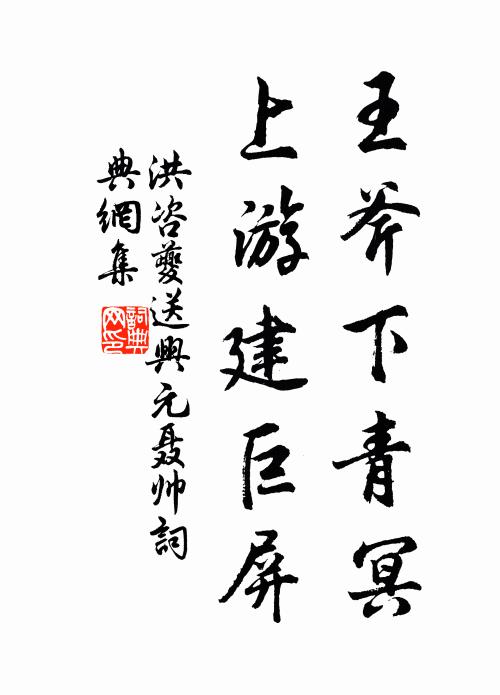 王斧下青冥
上游建巨屏
洪咨夔送興元聂帅詞
典網集
詞典
网印